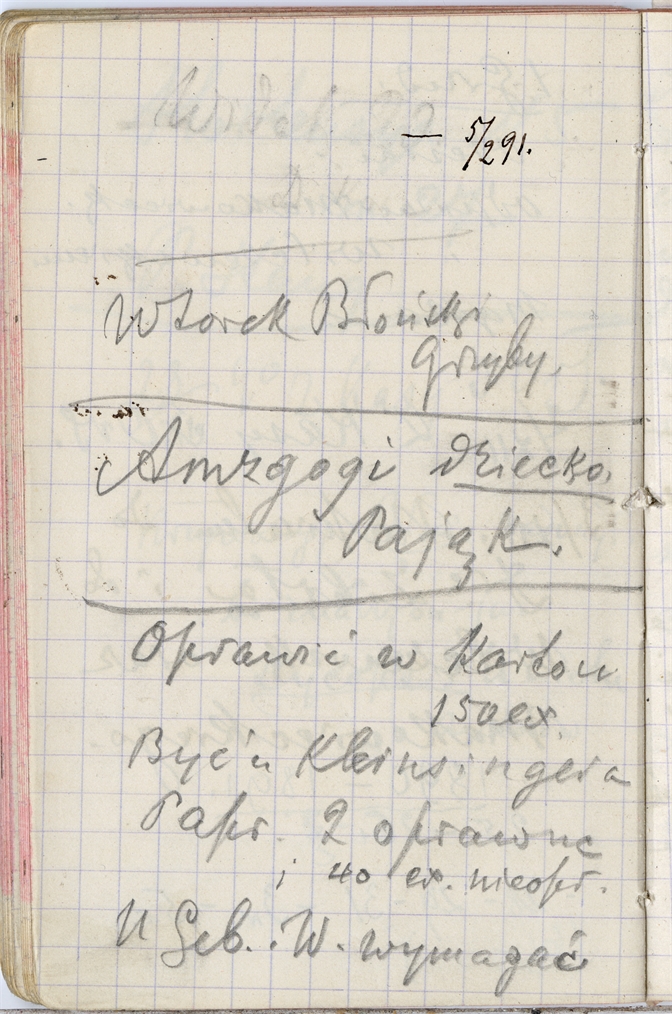 — 5/291.
Wtorek Błoński
Grzyby.
dziecko.
Pająk.
Oprawić w Karton
150 ex.
Być u Kleinsingera
Papr. 2 oprawne
i 40 ex. nieopr.
U Geb. . W. wymagać